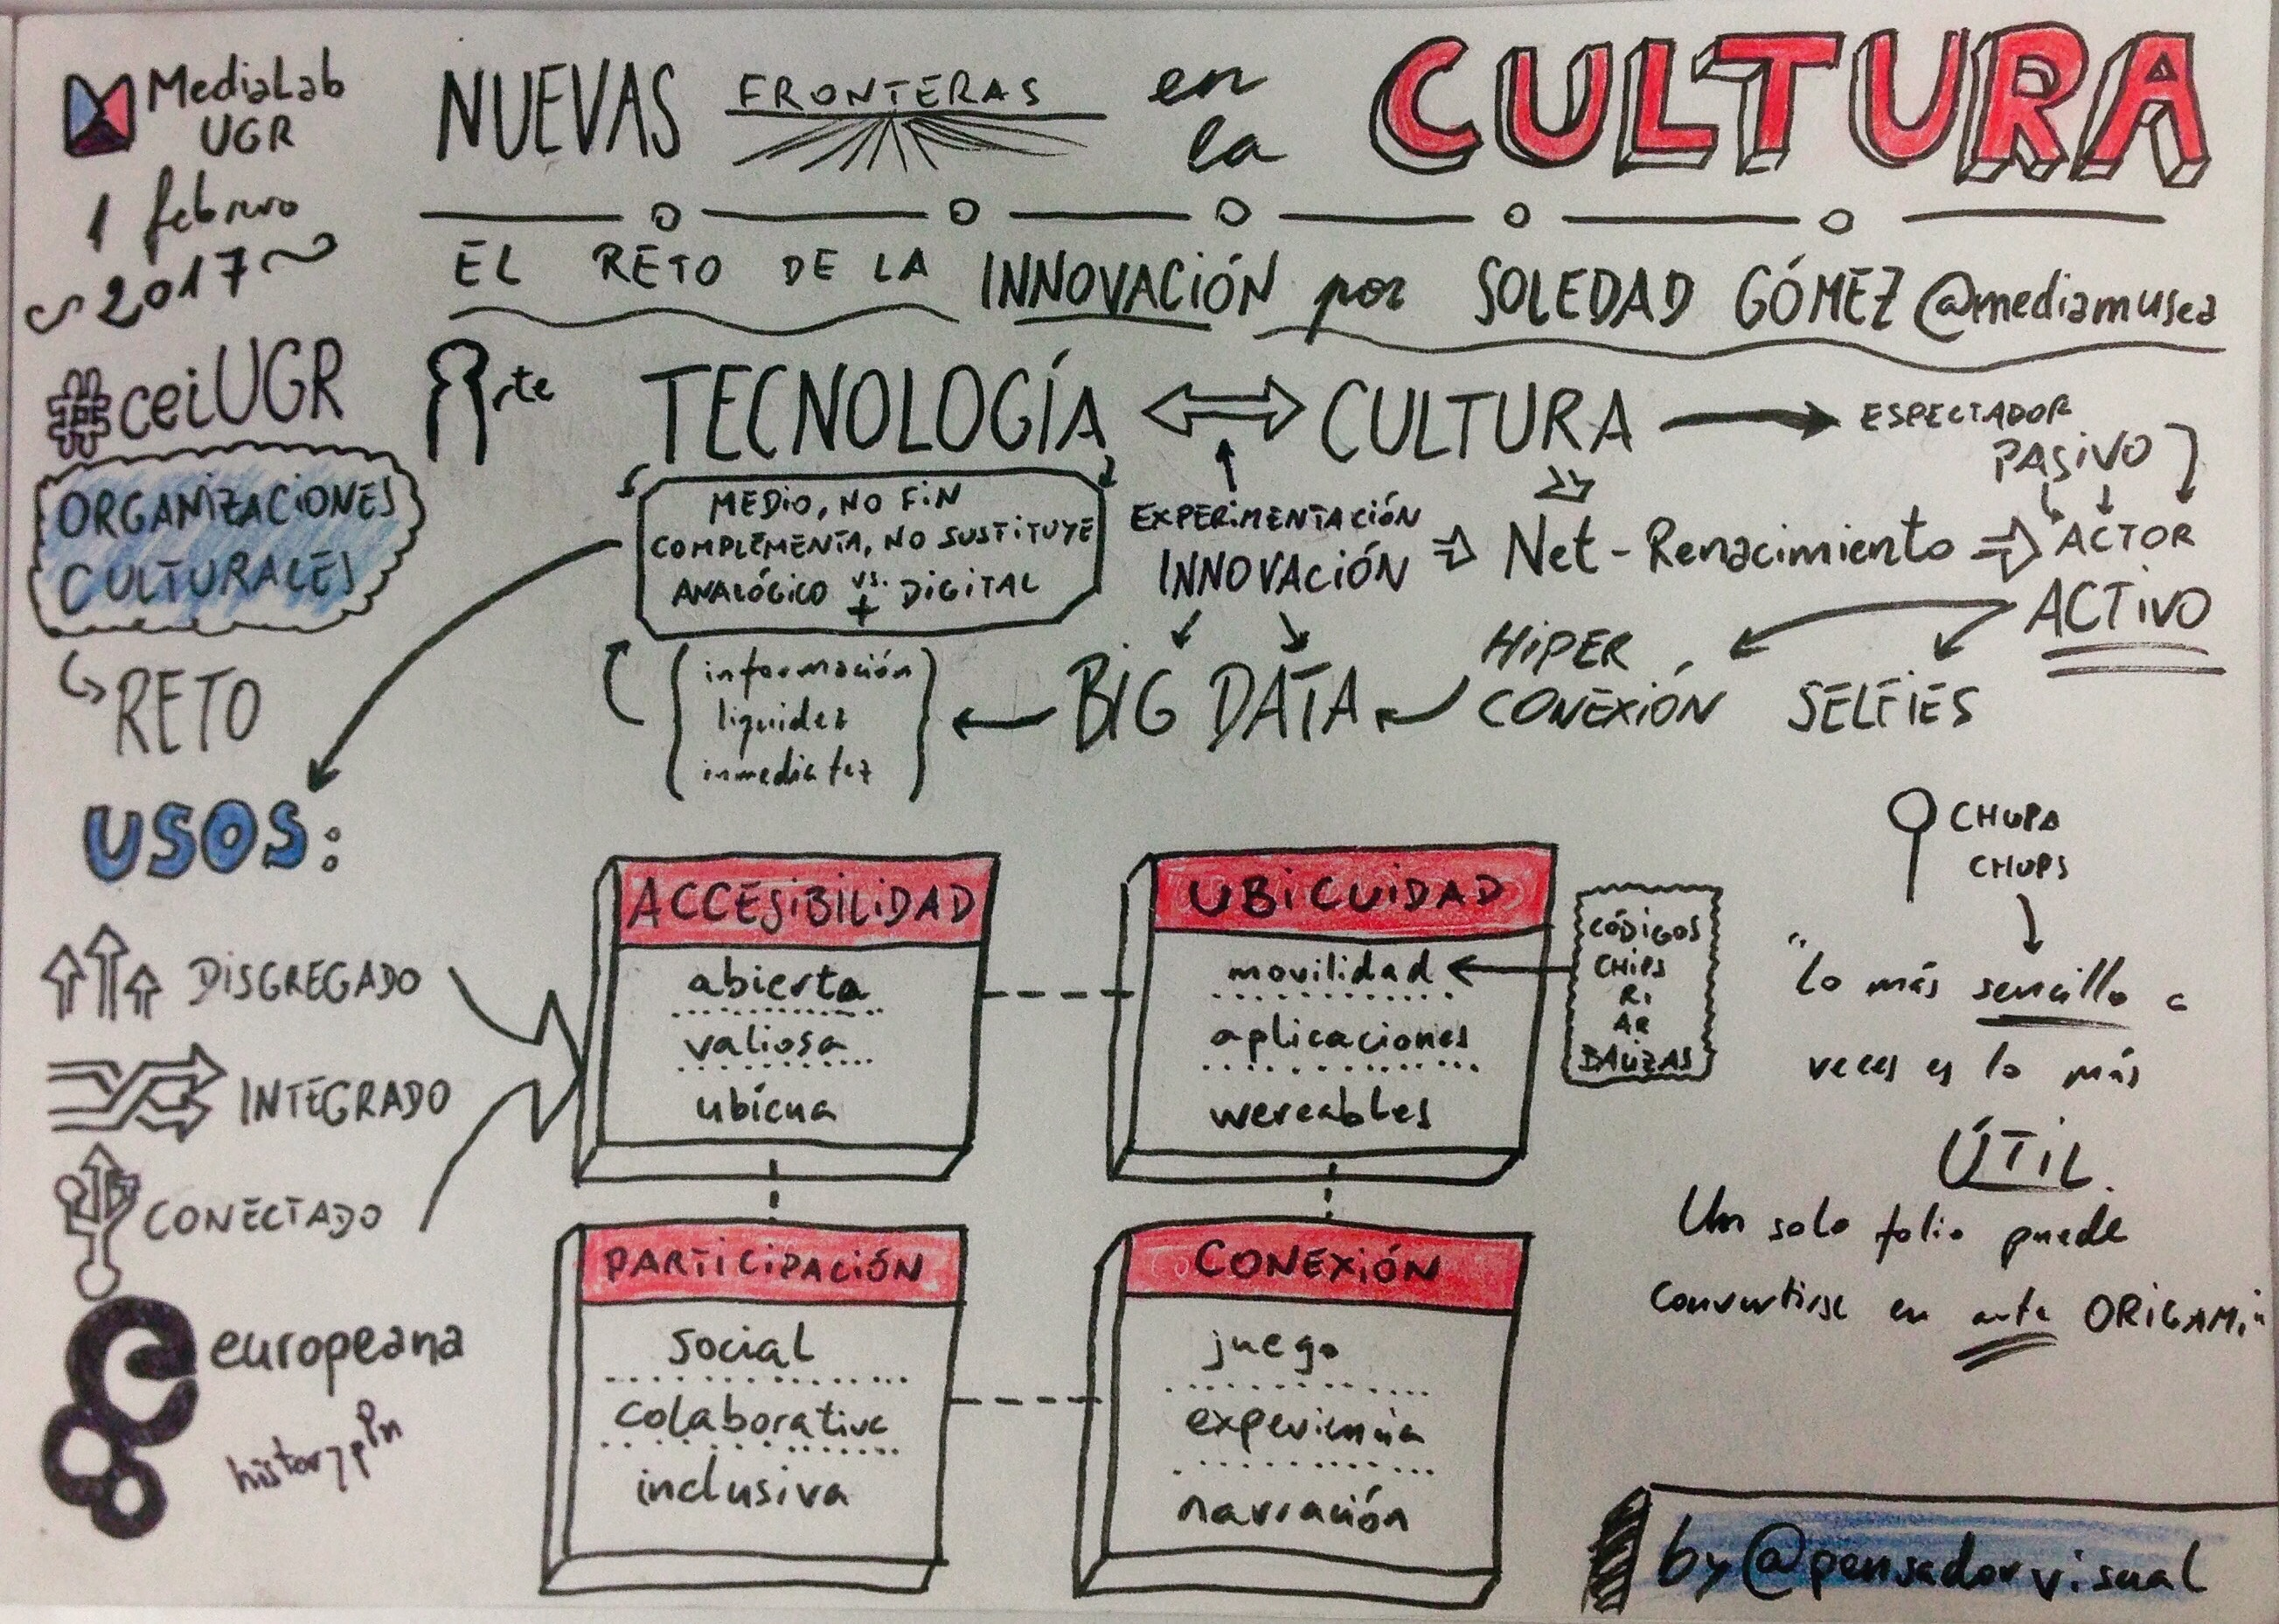 MediaLab
UGR
1 febrero
2017
#ceiUGR
ORGANIZACIONES
CULTURALES
RETO
NUEVAS FRONTERAS en la CULTURA
EL RETO DE LA INNOVACIÓN por SOLEDAD GÓMEZ @mediamusea
Arte
TECNOLOGÍA CULTURA ESPECTADOR
PASIVO
MEDIO, NO FIN
COMPLEMENTA, NO SUSTITUYE
ANALÓGICO vs. + DIGITAL
EXPERIMENTACIÓN
INNOVACIÓN
Net-Renacimiento
ACTOR
ACTIVO
HIPER
CONEXIÓN
SELFIES
BIG DATA
información
liquidez
inmediatez
USOS:
DISGREGADO
INTEGRADO
CONECTADO
europeana
historypin
ACCESIBILIDAD
abierta
valiosa
ubicua
UBICUIDAD
movilidad
aplicaciones
wereables
CÓDIGOS
CHIPS
RI
AR
BALIZAS
PARTICIPACIÓN
social
colaborative
inclusiva
CONEXIÓN
juego
experiencia
narración
CHUPA
CHUPS
"lo más sencillo a
veces es lo más
ÚTIL.
Un solo folio puede
convertirse en arte ORIGAMI"
by @pensadorvisual